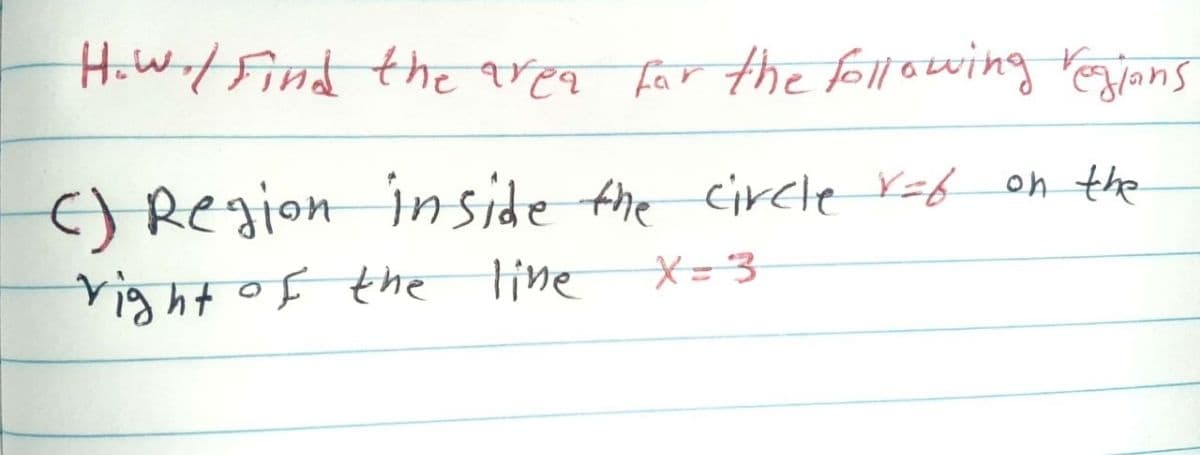 H.W./ Find the area for the following regions
C) Region inside the circle r=6 on the
right of the line X=3